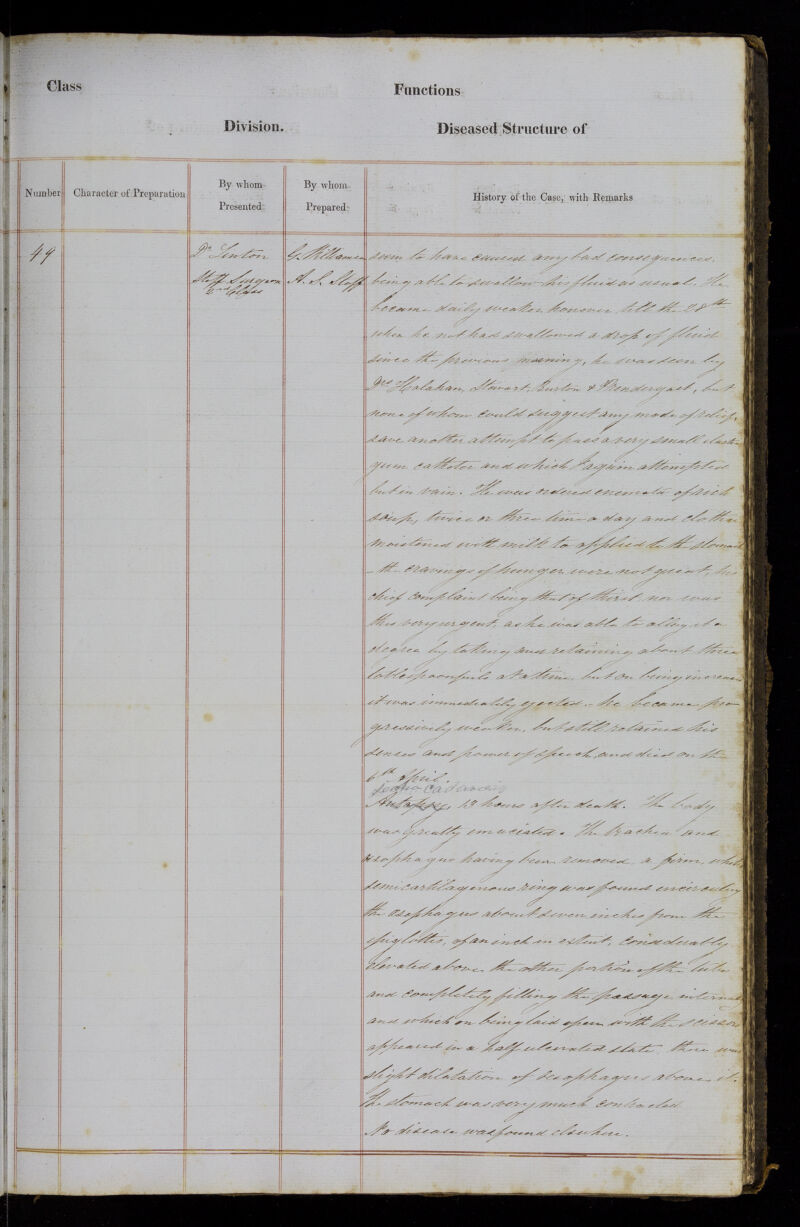 Class Functions
Division. Diseased Structure of
Number Character of Preparation By whom Presented By whom Prepared History of the Case, with Remarks
49 Dr Linton G. Williamson seem to have caused any bad consequences.
Staff Surgeon A. S. Staff being able to swallow his fluid as usual. He
2nd Class
became daily weaker however till the 28th
when he not had swallowed a drop of fluid
since the previous morning, he was seen by
Drs Halahan, Stewart, Burton & Prendergast, but
none of whom could suggest any mode of relief,
save another attempt to pass a very small elastic
gum catheter and which I again attempted
but in vain. He was ordered enemata of rich
soup, twice or three time a day and cloths
moistened with milk to applied to the stomach
- the cravings of hunger were not great, his
chief complaint being that of thirst nor was
this very urgent, as he was able to allay it a
degree by taking and retaining about three
tablespoonfuls at a time but on being increased
it was immediately ejected. - he became pro
gressively weaker, but still retained his
senses and power of speech, and died on the
6th April.
Sectio Cadaveris
Autopsy, 13 hours after death. The body
was greatly emaciated. The trachea and
œsophagus having been removed a firm, white
semicartilagenous ring was found encircling
the œsophagus about seven inches from the
epiglottis, of an inch in extent, considerably
elevated above the other portion of the tube
and completely filling the passage internally
and which on being laid open with the scissors
appeared in a half ulcerated state. there was
slight dilatation of œsophagus above it.
The stomach was very much contracted
No disease was found elsewhere.